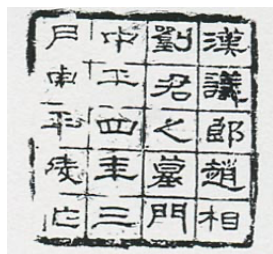 漢議郎趙相
劉君之墓門
中平四年三
月東平陵